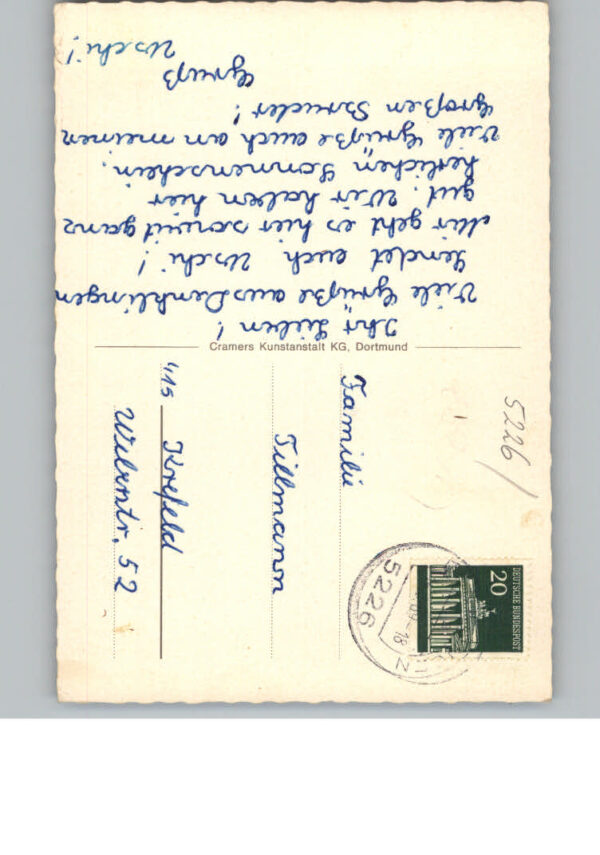 Ihr Lieben!
Viele Grüße aus Denklingen
Sendet euch Uschi!
Mir geht es hier soweit ganz
gut. Wir haben hier
herlichen Sonnenschein.
Viele Grüße auch an meinen
Großen Bruder!
Gruß
Uschi!
Cramers Kunstanstalt KG, Dortmund
5226/
DEUTSCHE BUNDESPOST
20
5226
-18
Familie
Tillmann
415 Krefeld
52